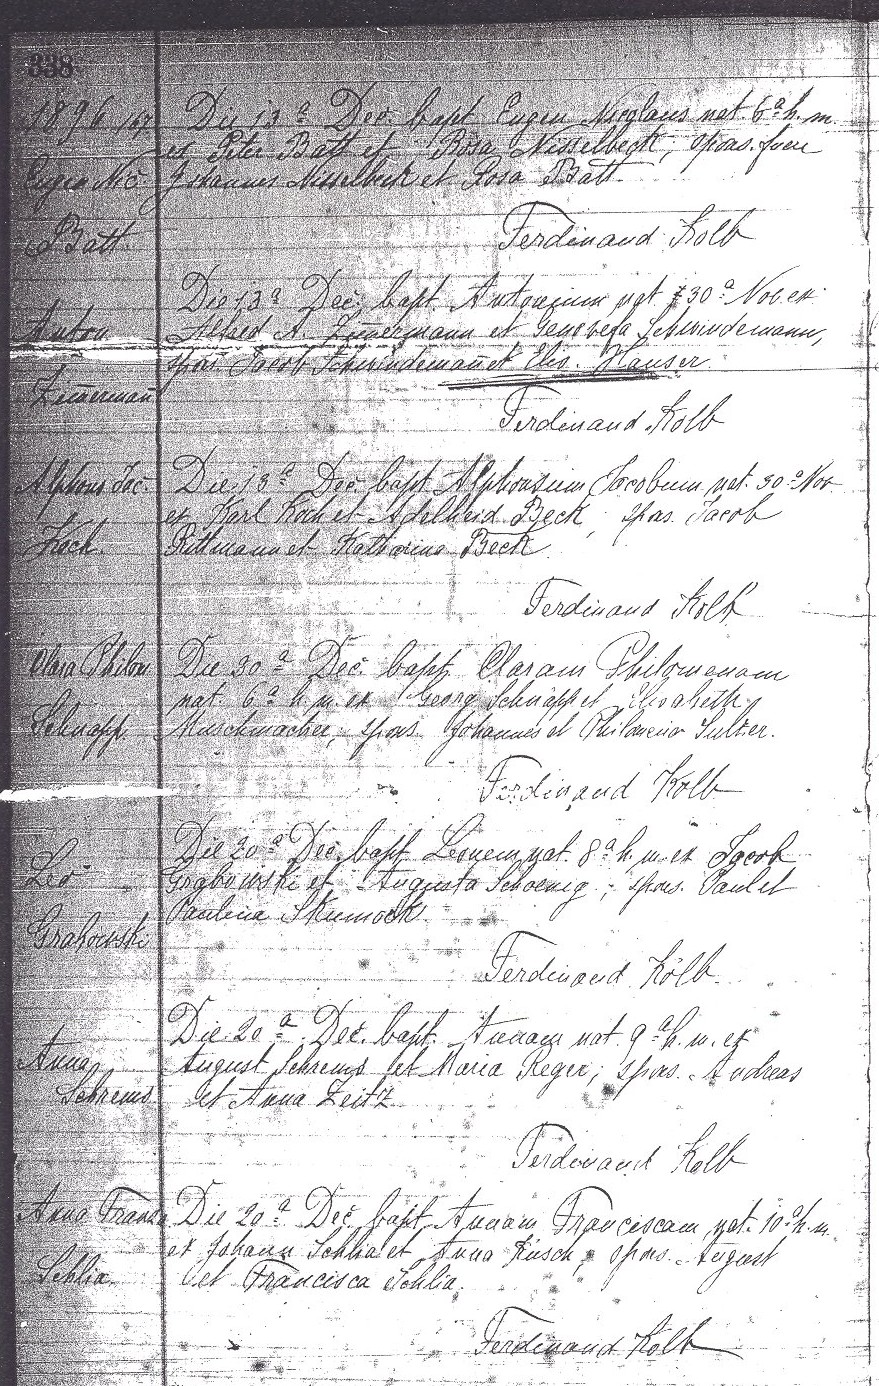 338
1896 167 Die 13ª Dec. bapt. Eugen Nicolaus nat. 6ª h. m.
ex Peter Batt et Rosa Nisselbeck; spons. fuere
Eugen Nic. Johannes Nisselbeck et Rosa Batt.
Batt. Ferdinand Kolb
Die 13ª Dec. bapt. Antonium nat 30ª Nov. ex
Anton Alfred A. Zimmermann et Genovefa Schwindemann,
spons Jacob Schwindemann et Elis. Hauser.
Zimmermann Ferdinand Kolb
Alphons Jac. Die 13ª Dec. bapt Alphonsum Jacobum nat. 30ª Nov.
ex Karl Koch et Adelheid Beck; spons. Jacob
Koch. Rittmann et Katharina Beck
Ferdinand Kolb
Clara Philom Die 20ª Dec. bapt. Claram Philomenam
nat. 6ª h. m. ex Georg Schnapp et Elisabeth
Schnapp. Muschmacher, spons. Johannes et Philomena Sulzer.
Ferdinand Kolb
Die 20ª Dec. bapt. Leonem nat. 8ª h. m. ex Jacob
Leo Grabowski et Augusta Schoenig; spons. Paul et
Paulina
Grabowski Ferdinand Kolb
Die 20ª Dec. bapt. Annam nat. 9ª h. m. ex
Anna August Schrems et Maria Reger; spons. Andreas
Schrems et Anna Zeitz
Ferdinand Kolb
Anna Franza Die 20ª Dec. bapt. Annam Franciscam, nat. 10ª h. m.
ex Johann Schlia et Anna Kusch; spons. August
Schlia. et Francisca Schlia.
Ferdinand Kolb